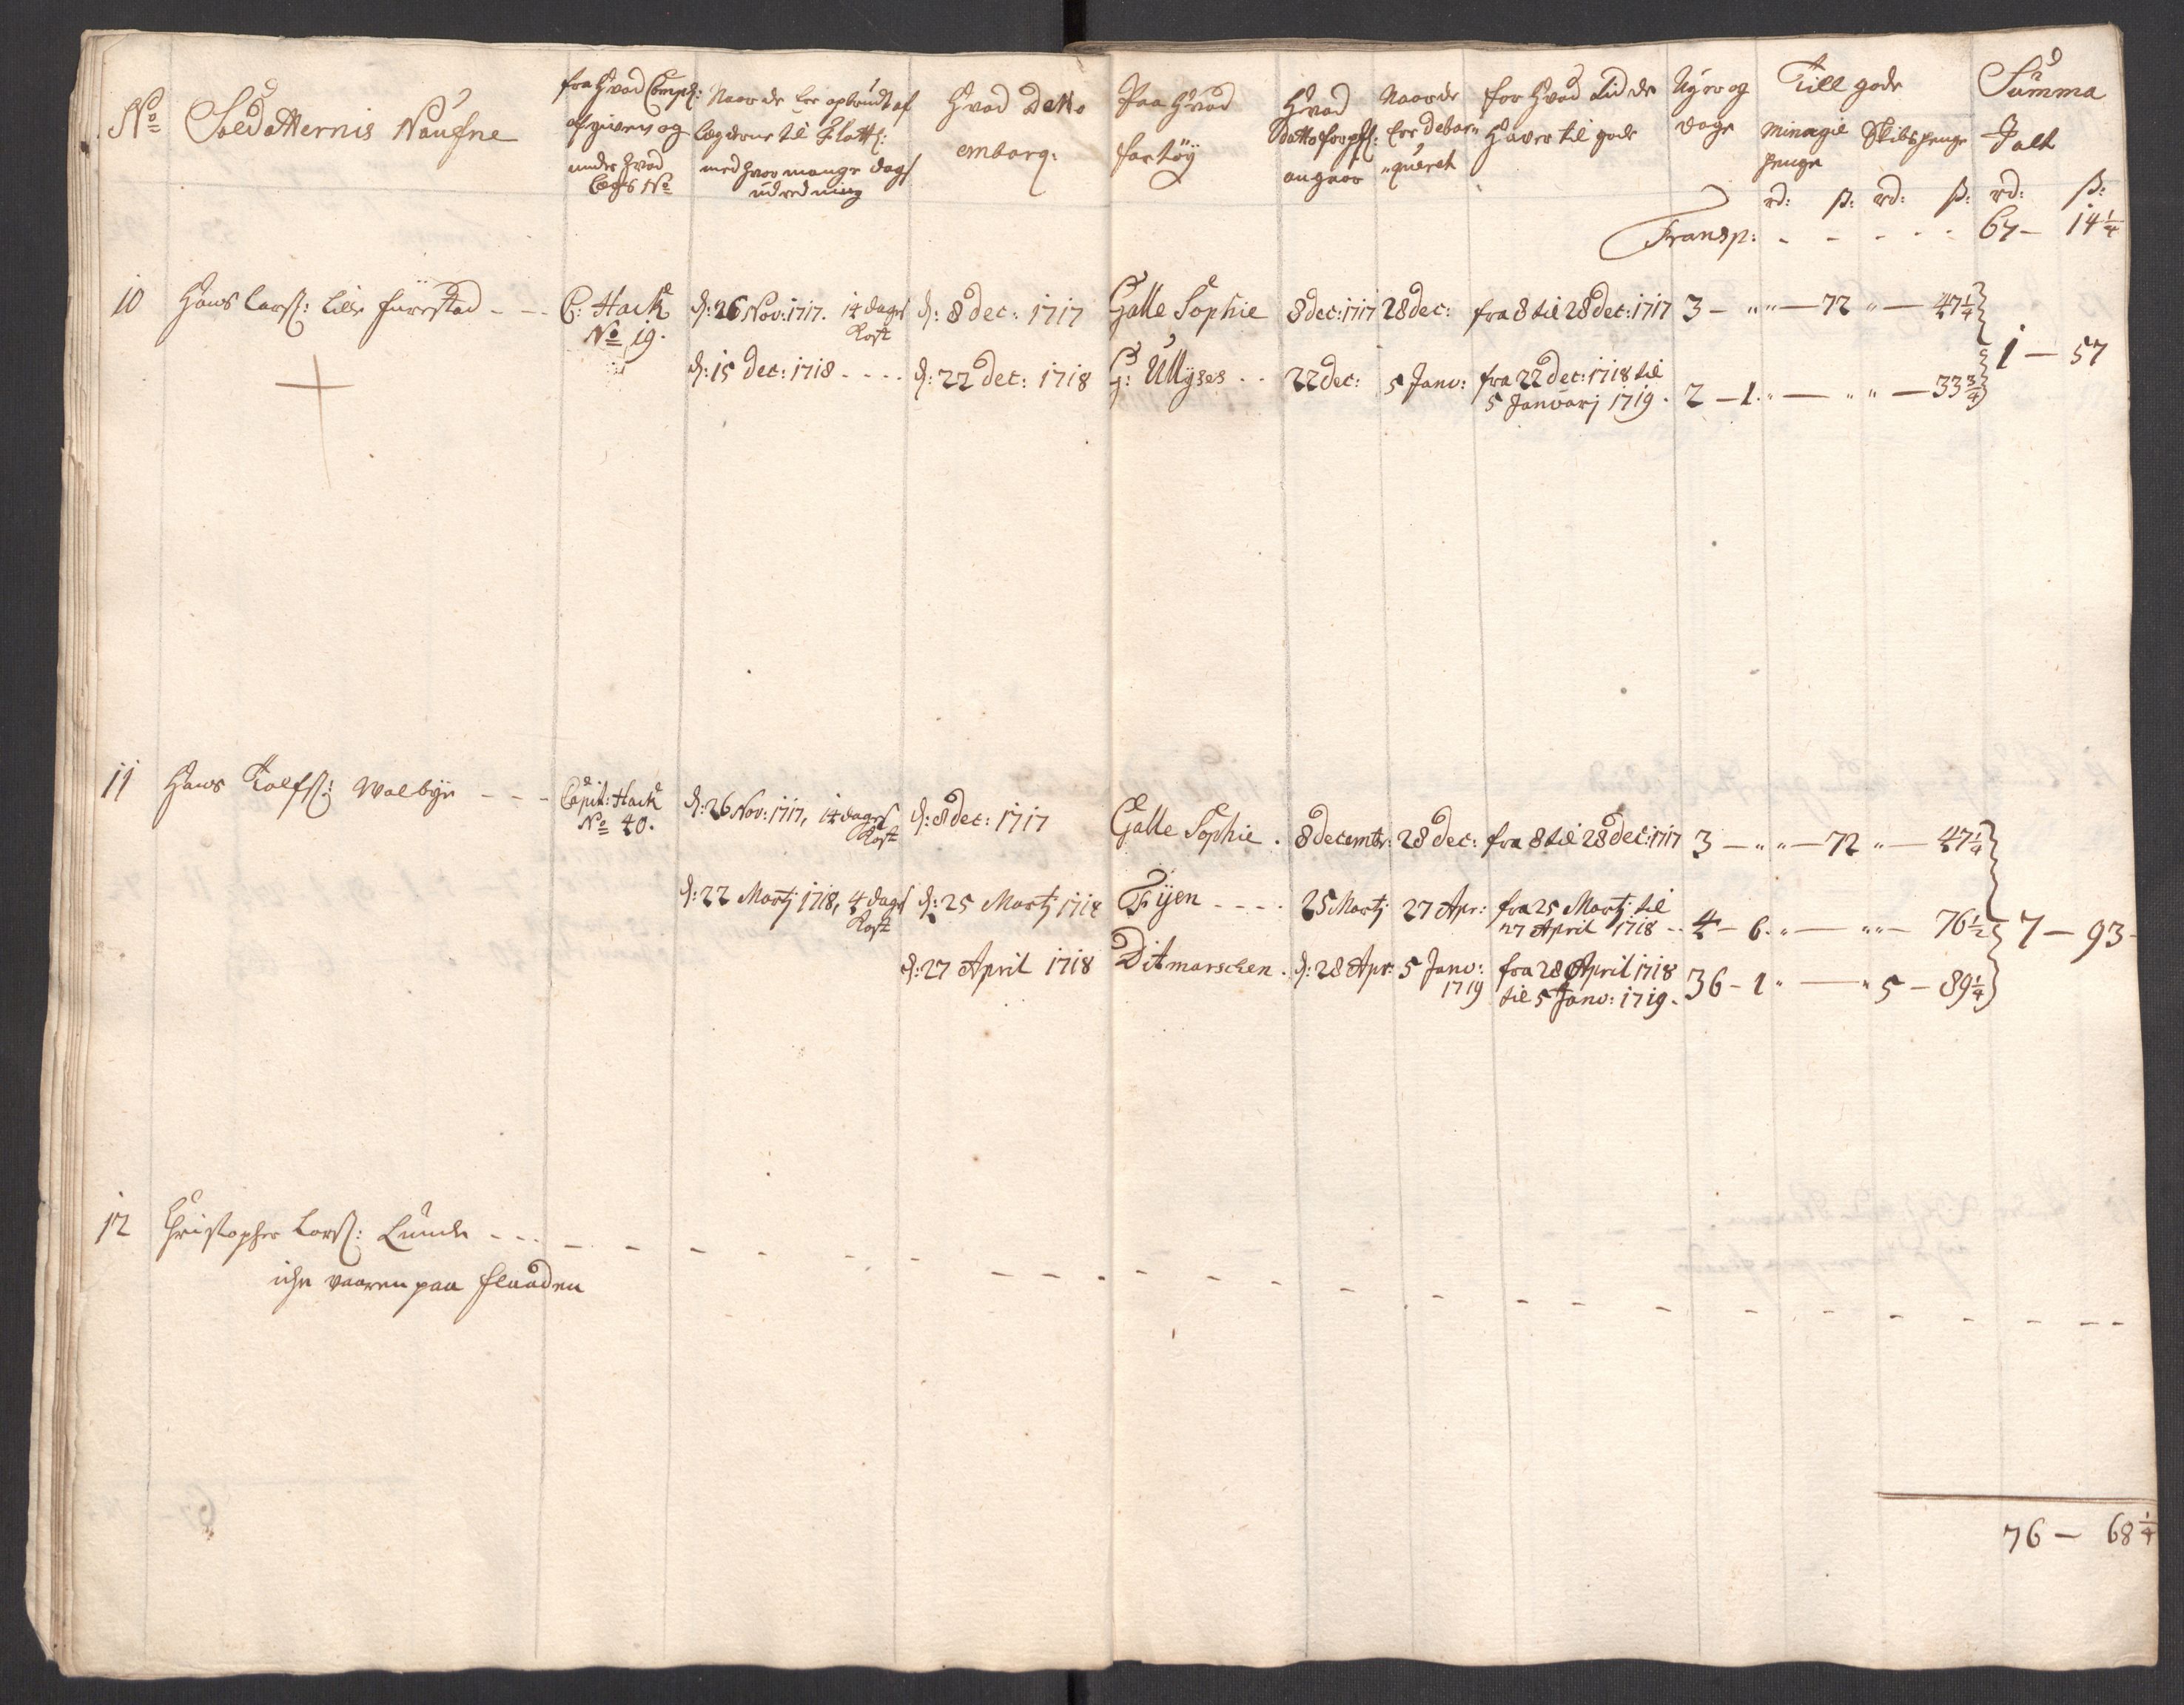 No
Soldatternis Naufne
fra hvad Comp:
afgiven og
under hvad
Legds No
Naar de ere opbudt af
Legderne til Flott:
med hvor mange dags
udredning
Hvad Datto
embarq:
Paa hvad
fartøy
Hvad
Datto forpfl:
angaar
Naar de
ere debar-
-queret
for hvad Tid de
haver til gode
Uger og
dage
Till gode
Minagie
penge
Skibspenge
Summa
Jalt
rd: ß: rd: ß: rd: ß:
Transp: - - - - - 67 - 14 1/4
10 Hans Larss: Lille - - - C: Hack d: 26 Nov: 1717. 14 dages d: 8 dec: 1717 Galle Sophie 8 dec: 1717 28 dec: fra 8 til 28 dec: 1717 3 - " " - 72 " - 47 1/4
No 19. Kost
1 - 57
d: 15 dec: 1718 - - - - d: 22 dec: 1718 G: Ullyses - - 22 dec: 5 Janv: fra 22 dec: 1718 til
5 Januarj 1719. 2 - 1 " - " " - 33 3/4
11 Hans Rolfss: Walbye - - - Capit: Hack d: 26 Nov: 1717, 14 dages d: 8 dec: 1717 Galle Sophie . 8 decembr: 28 dec: fra 8 til 28 dec: 1717 3 - " " - 72 " - 47 1/4
No 40. Kost
d: 22 Martj 1718, 4 dags d: 25 Martj 1718 Fyen - - - - 25 Martj 27 Apr: fra 25 Martj til
Kost 27 April 1718 - - 4 - 6 " - " " - 76 1/2 7 - 93 -
d: 27 April 1718 Ditmarschen . d: 28 Apr: 5 Janv: fra 28 April 1718
1719 til 5 Janv: 1719. 36 - 1 " - " 5 - 89 1/4
12 Christopher Larss: Lunde - - -
iche vaaren paa flaaden
76 - 68 1/4